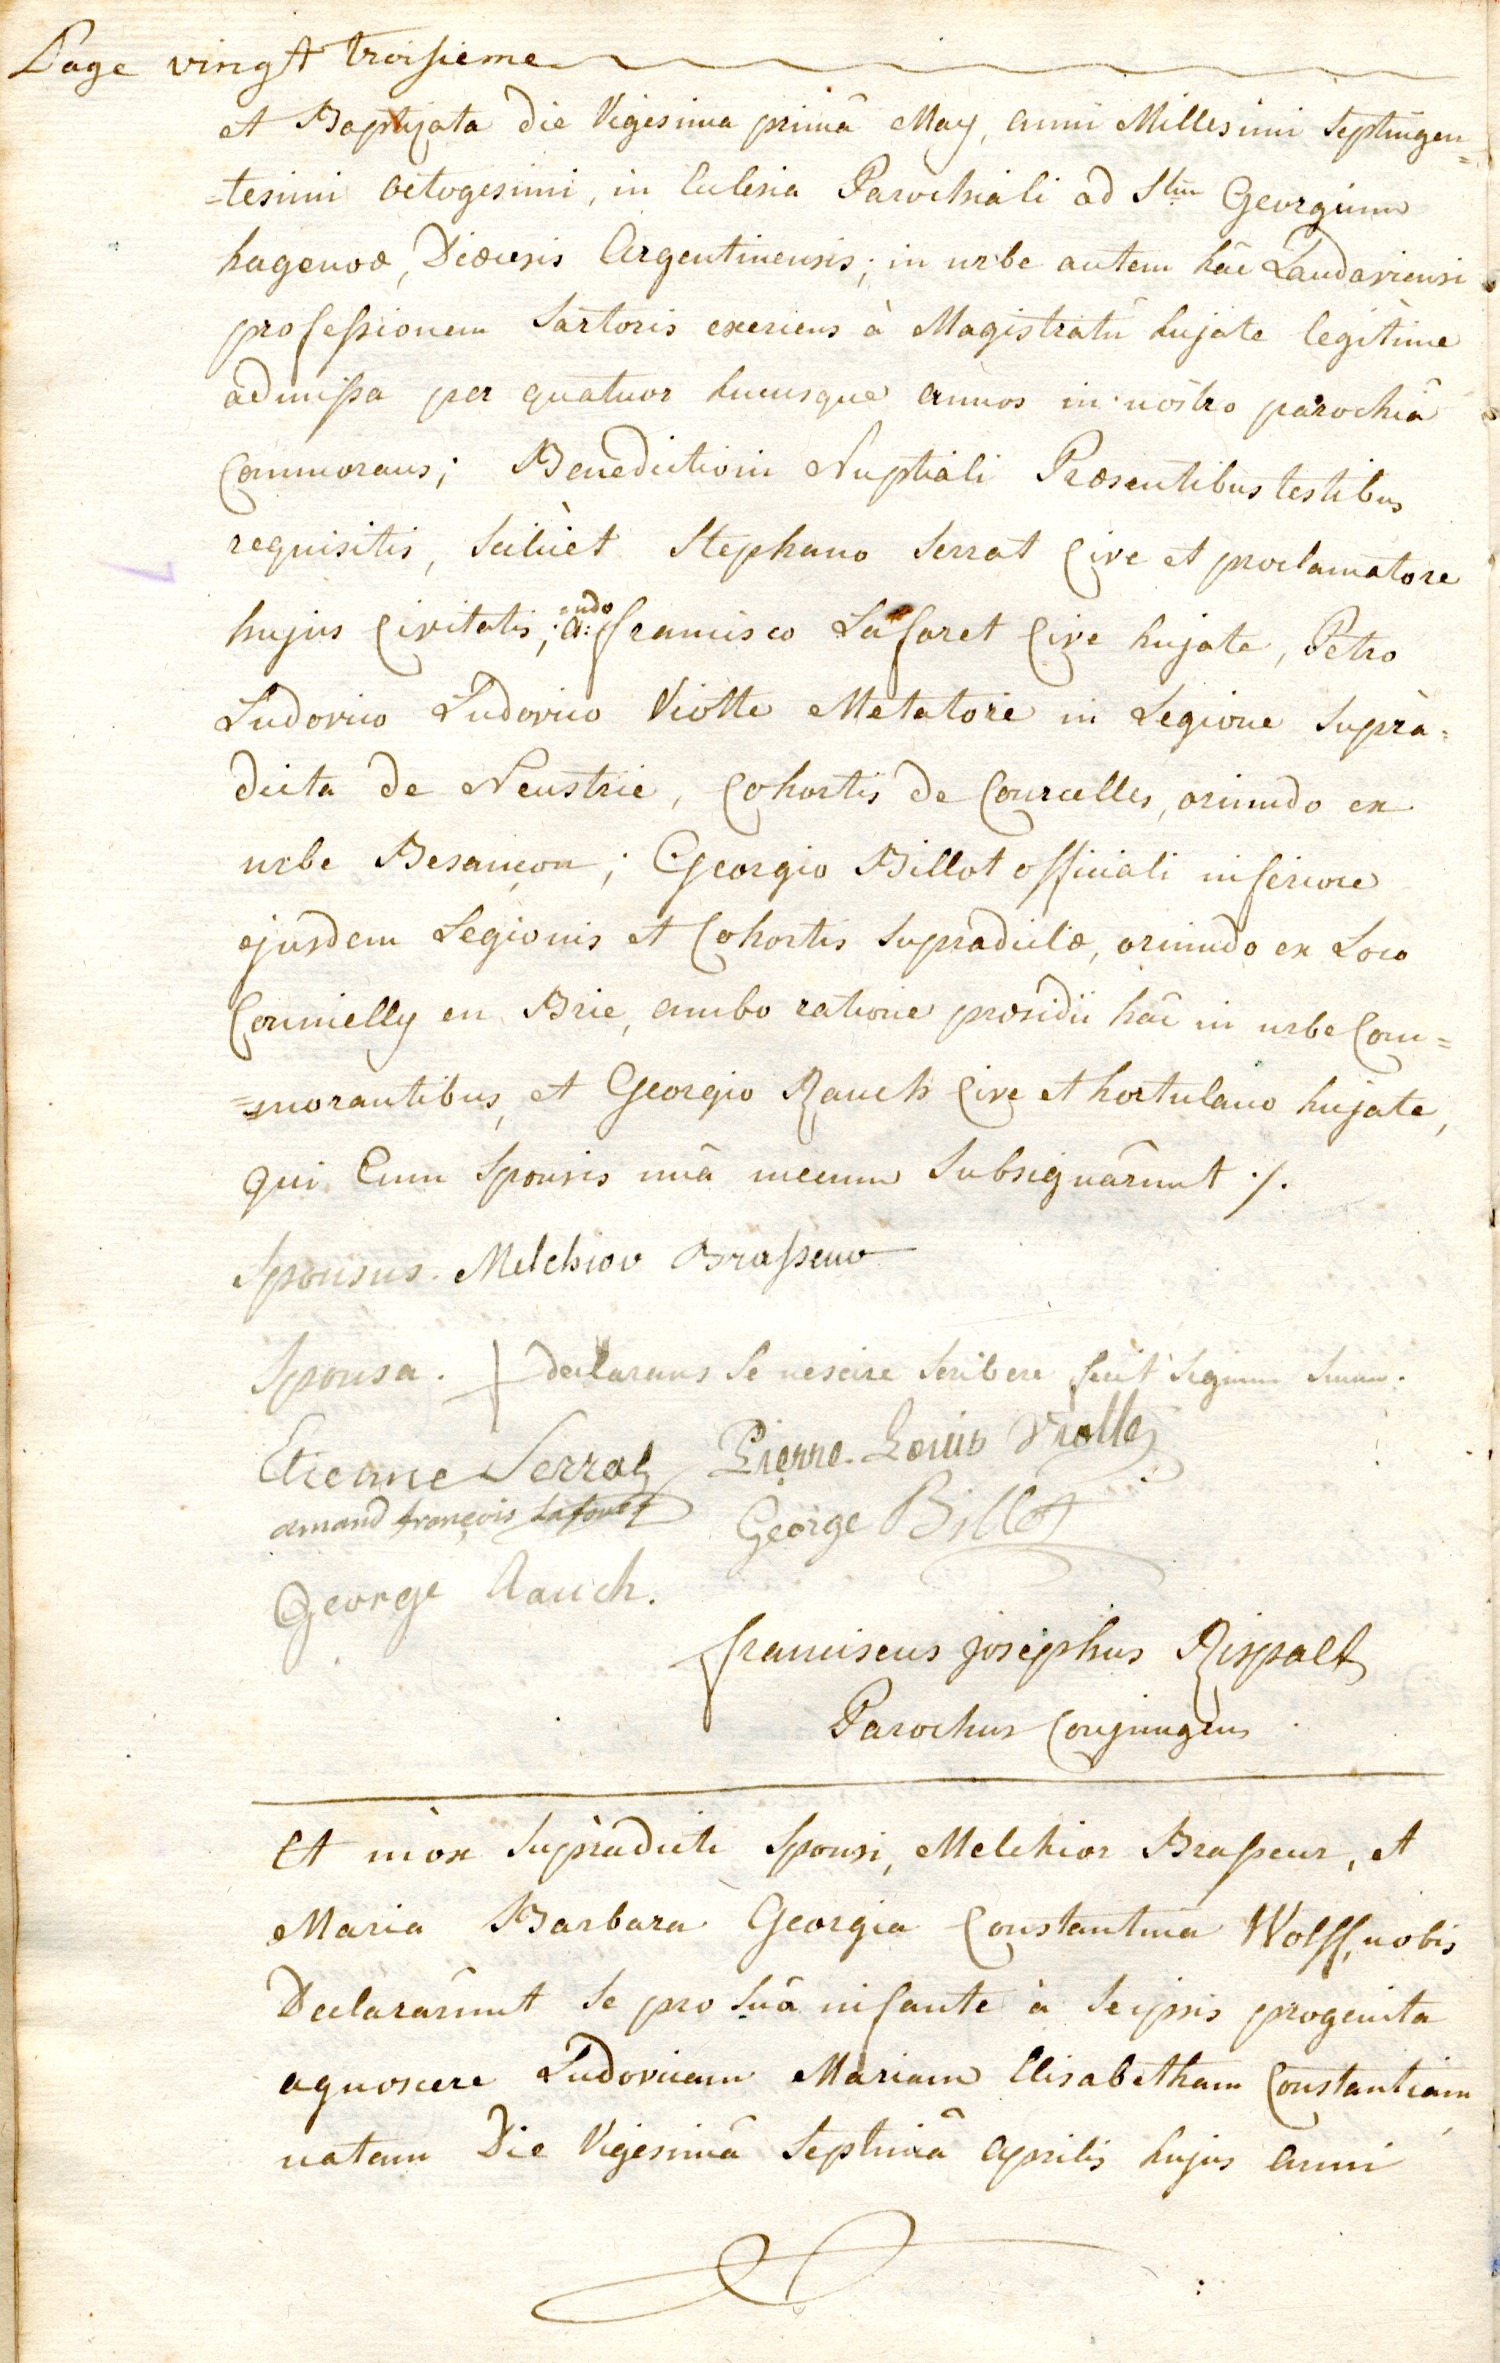 Page vingt troisieme
et Baptizata die Vigesima primâ May, anni Millesimi Septingen=
=tesimi octogesimi, in Eclesia Parochiali ad Stum Georgium
hagenoæ, Diœcesis Argentinensis; in urbe autem hâc Landaviensi
professionem Sartoris exercens à Magistratu hujate legitime
admissa per quatuor hucusque annos in nostra parochiâ
Commorans; Benedictioni Nuptiali Præsentibus testibus
requisitis, Scilicet Stephano Serrat Cive et proclamatore
hujus Civitatis; a:ndo francisco Lafaret Cive hujate, Petro
Ludovico Ludovico Viotte Metatore in Legione Suprà=
dicta de Neustrie, Cohortis de Courcelles, oriundo ex
urbe Besançon; Georgio Billot officiali inferiore
ejusdem Legionis et Cohortis Supradictæ, oriundo ex Loco
Coumielly en Brie, ambo ratione præsidii hâc in urbe Com=
=morantibus, et Georgio Rauch Cive et hortulano hujate,
qui Cum Sponsis unâ mecum Subsignârunt ./.
Sponsus. Melchior Brasseur
Sponsa. + declarans Se nescire Scribere fecit Signum Suum.
Etienne Serrat Pierre Louis Viotte
amand françois Lafaret George Billot
George Rauch.
franciscus josephus Rispalt
Parochus Conjungens
Et mòx Supràdicti Sponsi, Melchior Brasseur, et
Maria Barbara Georgia Constantina Wolff, nobis
Declarârunt Se pro Suâ infante à Seipsis progenita
agnoscere Ludovicam Mariam Elisabetham Constantiam
natam Die Vigesimâ Septimâ Aprilis hujus anni